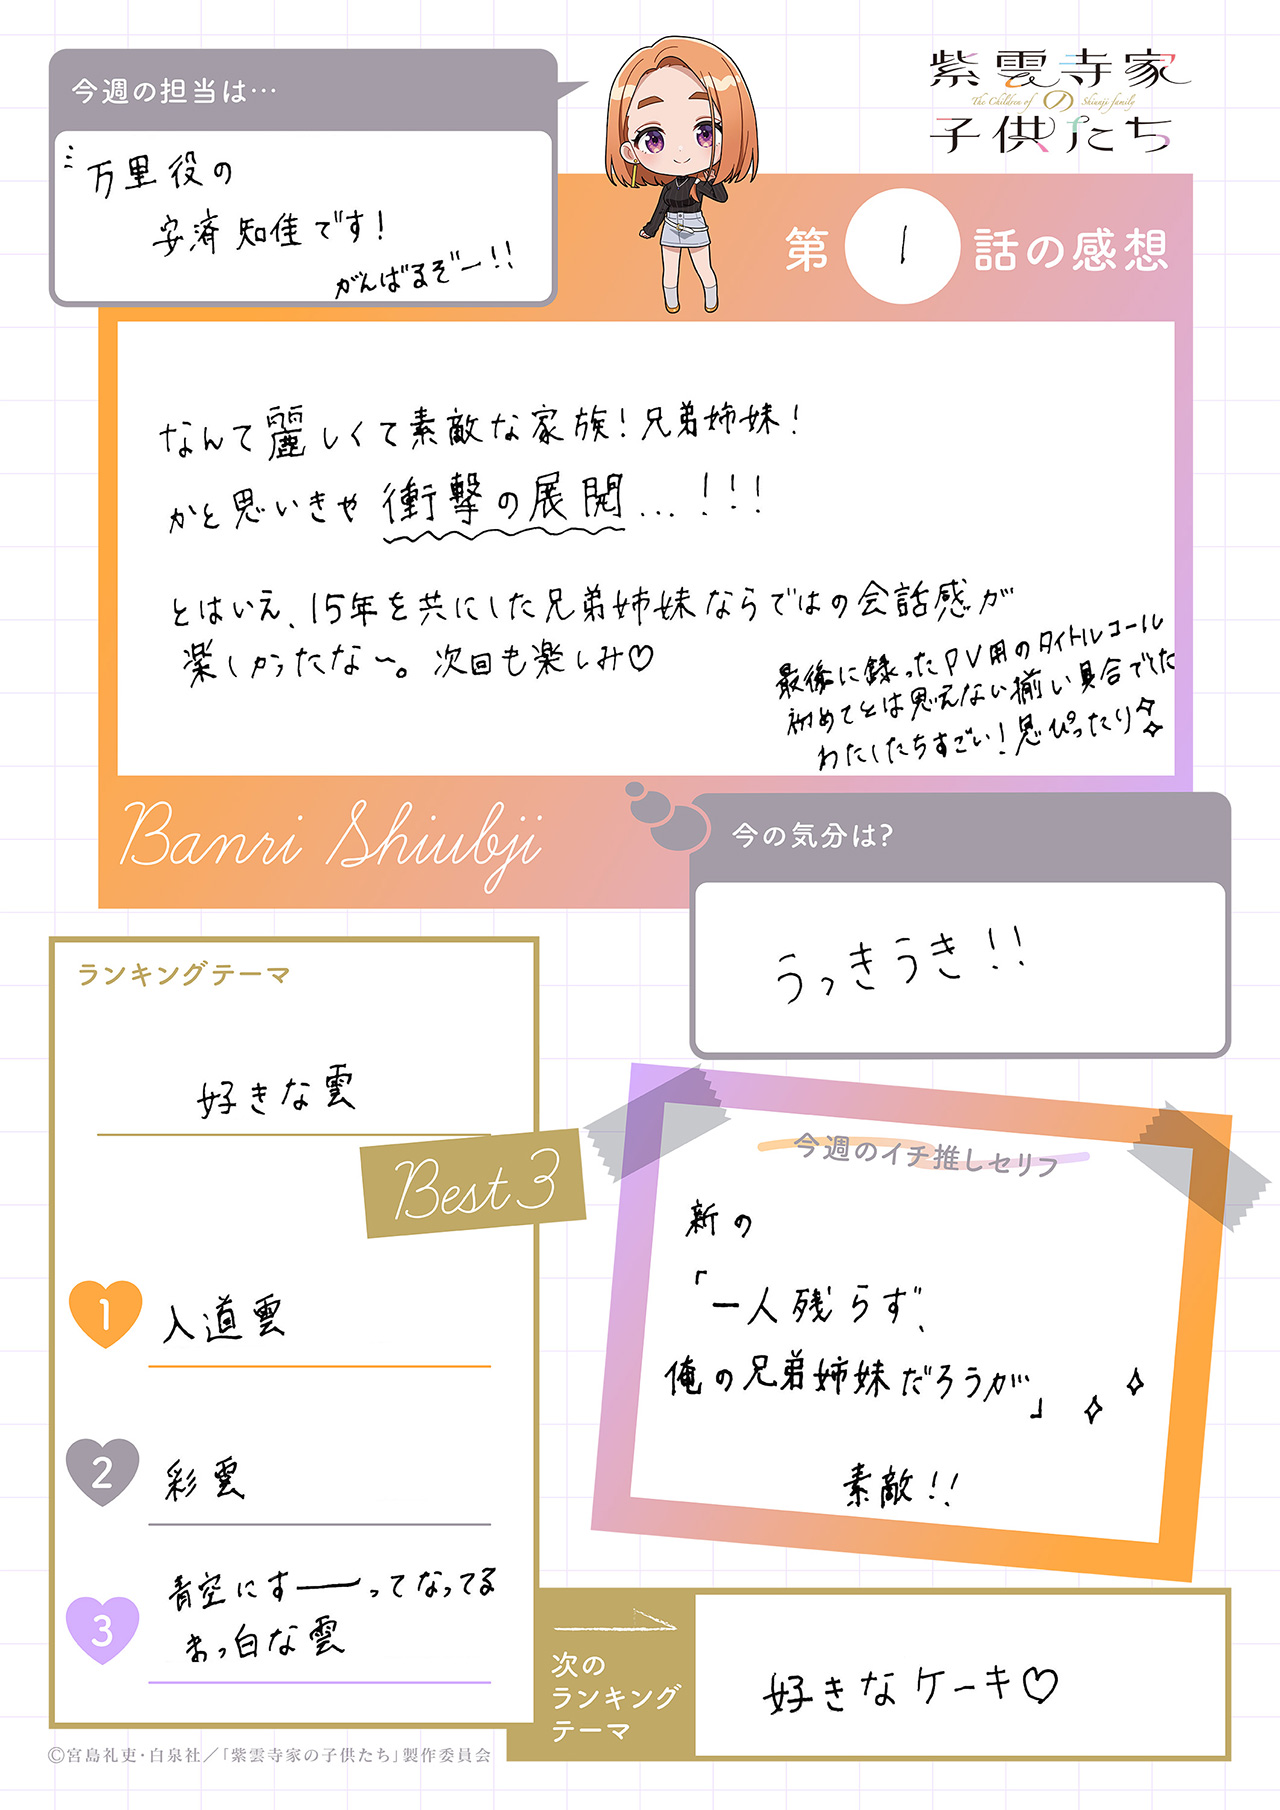 今週の担当は…
万里役の
安済 知佳です!
がんばるぞー!!
紫雲寺家
The Children of の Shiunji family
子供たち
第 1 話の感想
なんて麗しくて素敵な家族!兄弟姉妹!
かと思いきや 衝撃の展開…!!!
とはいえ、15年を共にした兄弟姉妹ならではの会話感が
楽しかったな〜。次回も楽しみ♡
最後に録ったPV用のタイトルコール
初めてとは思えない揃い具合でした
わたしたちすごい!息ぴったり✧✧
Banri Shiubji
今の気分は?
うっきうき!!
ランキングテーマ
好きな雲
Best 3
1 入道雲
2 彩雲
3 青空にすーーってなってる
まっ白な雲
今週のイチ推しセリフ
新の
「一人残らず、
俺の兄弟姉妹だろうが」✧✧
素敵!!
次の
ランキング
テーマ
好きなケーキ♡
©宮島礼吏・白泉社/「紫雲寺家の子供たち」製作委員会